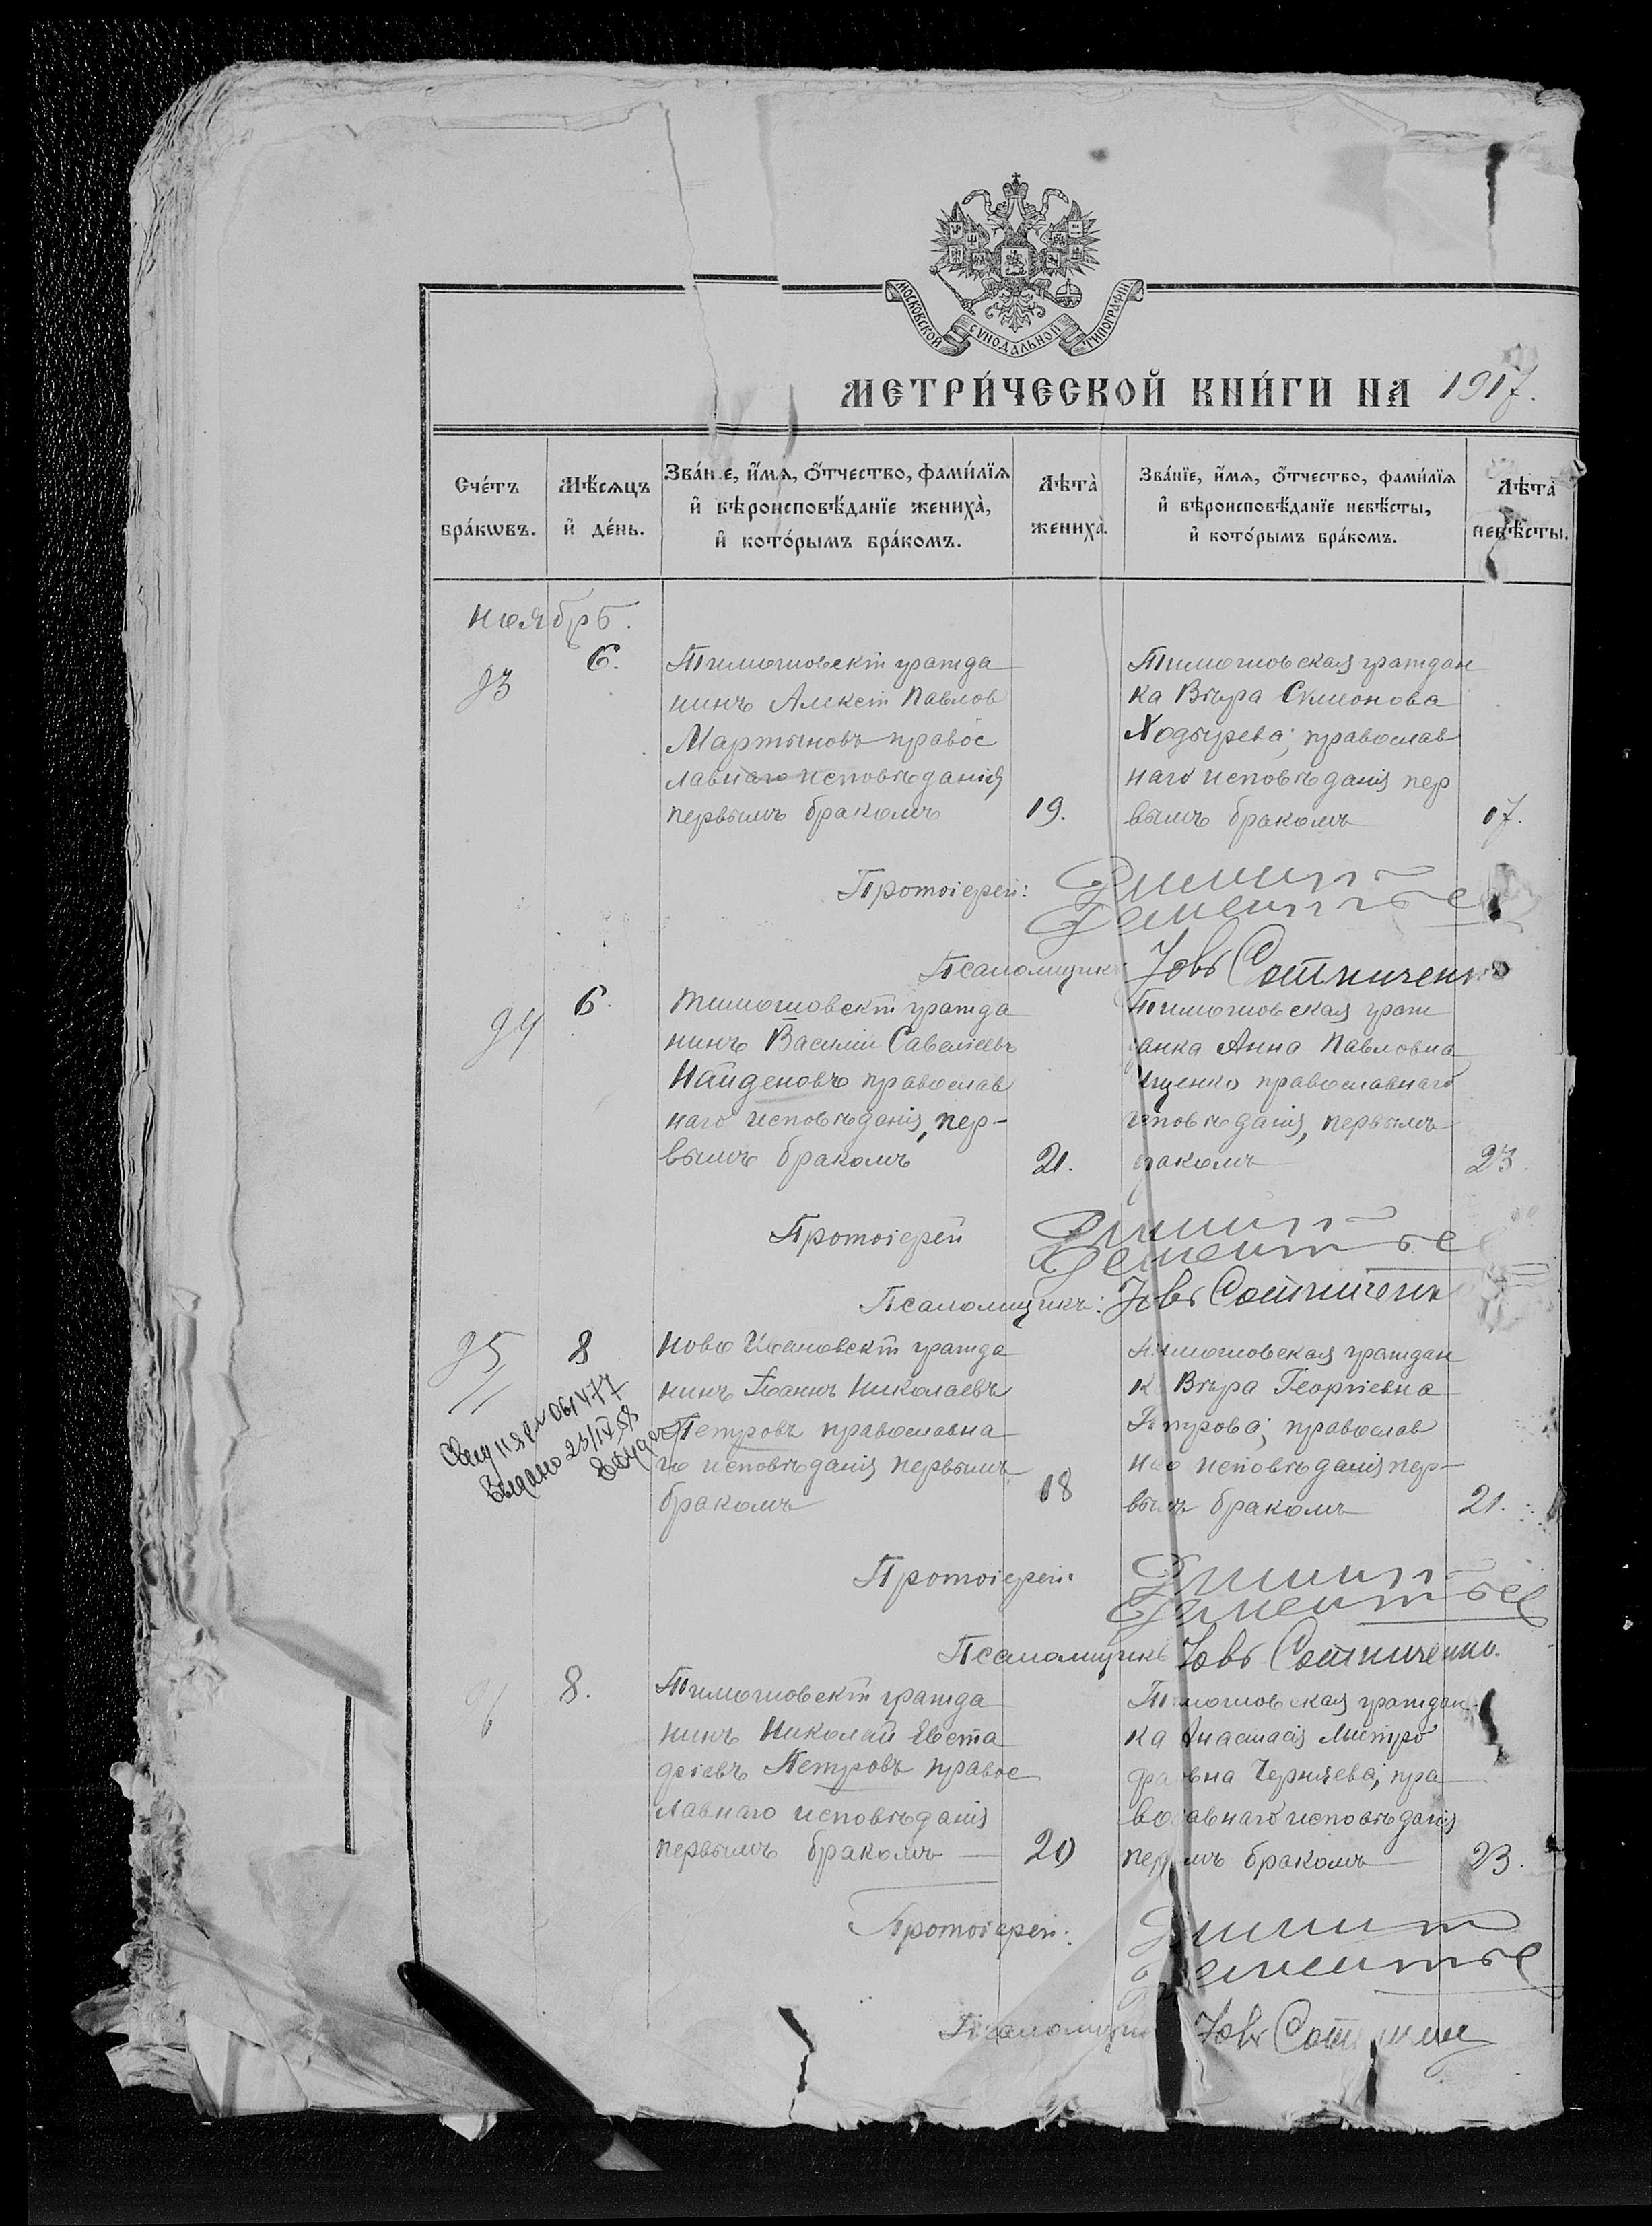 МОСКОВСКОЙ СѴНОДАЛЬНОЙ ТИПОГРАФІИ
МЕТРИ́ЧЕСКОЙ КНИ́ГИ НА 1917.
Сче́тъ бра́кωвъ.
Мѣ́сяцъ и҆ де́нь.
Зва́нїе, и҆́мѧ, ѻ҆́тчество, фами́лїѧ
и҆ вѣроисповѣ́данїе жениха̀,
и҆ кото́рымъ бра́комъ.
Лѣта̀ жениха̀.
Зва́нїе, и҆́мѧ, ѻ҆́тчество, фами́лїѧ
и҆ вѣроисповѣ́данїе невѣ́сты,
и҆ кото́рымъ бра́комъ.
Лѣта̀ невѣ́сты.
Ноябрь.
93
6.
Тимошовскій гражда
нинъ Алексій Павлов
Мартыновъ правос
лавнаго исповѣданія
первымъ бракомъ
19.
Тимошовская граждан
ка Вѣра Симонова
Ходырева; православ
наго исповѣданія пер
вымъ бракомъ
17.
Протоіерей: Димитрій
Дементьев
Псаломщикъ Іовъ Сотниченко
94
6.
Тимошовскій гражда
нинъ Василій Савеліевъ
Найденовъ православ
наго исповѣданія, пер-
вымъ бракомъ
21.
Тимошовская граж
анка Анна Павловна
Ищенко православнаго
исповѣданія, первымъ
ракомъ
23.
Протоіерей Димитрій
Дементьев
Псаломщикъ: Іовъ Сотниченк
95
8
Ново Ивановскій гражда
нинъ Іоаннъ Николаевъ
Петровъ православна
го исповѣданія первымъ
бракомъ
18
Тимошовская граждан
ка Вѣра Георгіевна
Петрова; православ
наго исповѣданія пер-
вымъ бракомъ
21.
061477
Выдано 23/IV 58
Протоіерей: Димитрій
Дементьев
Псаломщикъ Іовъ Сотниченко.
96
8.
Тимошовскій гражда
нинъ Николай Евста
фіевъ Петровъ правос
лавнаго исповѣданія
первымъ бракомъ —
20
Тимошовская граждан-
ка Анастасія Митро
фановна Черняева; пра
вославнаго исповѣданія
первымъ бракомъ —
23.
Протоіерей: Димитрій
Дементьев
Псаломщик Іовъ Сотниченко